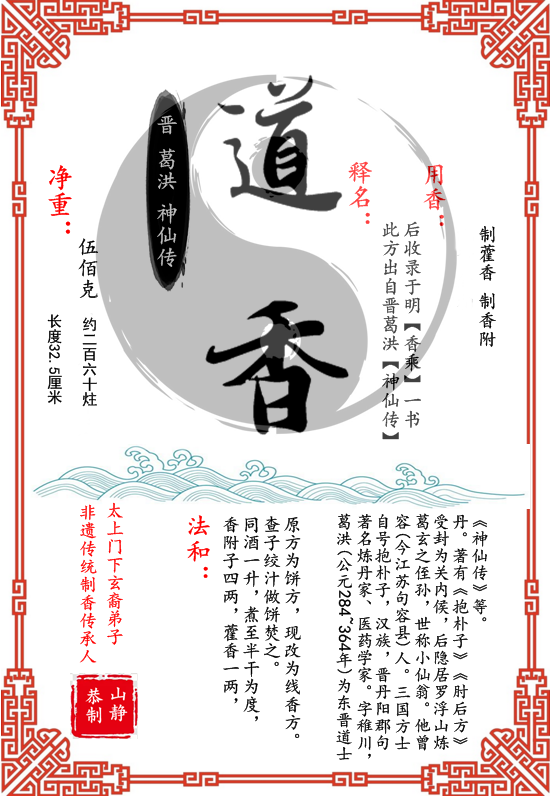 道香
晋 葛洪 神仙传
净重：
伍佰克 约二百六十炷
长度32.5厘米
释名：
此方出自晋葛洪【神仙传】
后收录于明【香乘】一书
用香：
制藿香 制香附
太上门下玄裔弟子
非遗传统制香传承人
山静
恭制
法和：
香附子四两，藿香一两，
同酒一升，煮至半干为度，
查子绞汁做饼焚之。
原方为饼方，现改为线香方。
葛洪(公元284~364年)为东晋道士
著名炼丹家、医药学家。字稚川，
自号抱朴子，汉族，晋丹阳郡句
容(今江苏句容县)人。三国方士
葛玄之侄孙，世称小仙翁。他曾
受封为关内侯，后隐居罗浮山炼
丹。著有《抱朴子》《肘后方》
《神仙传》等。